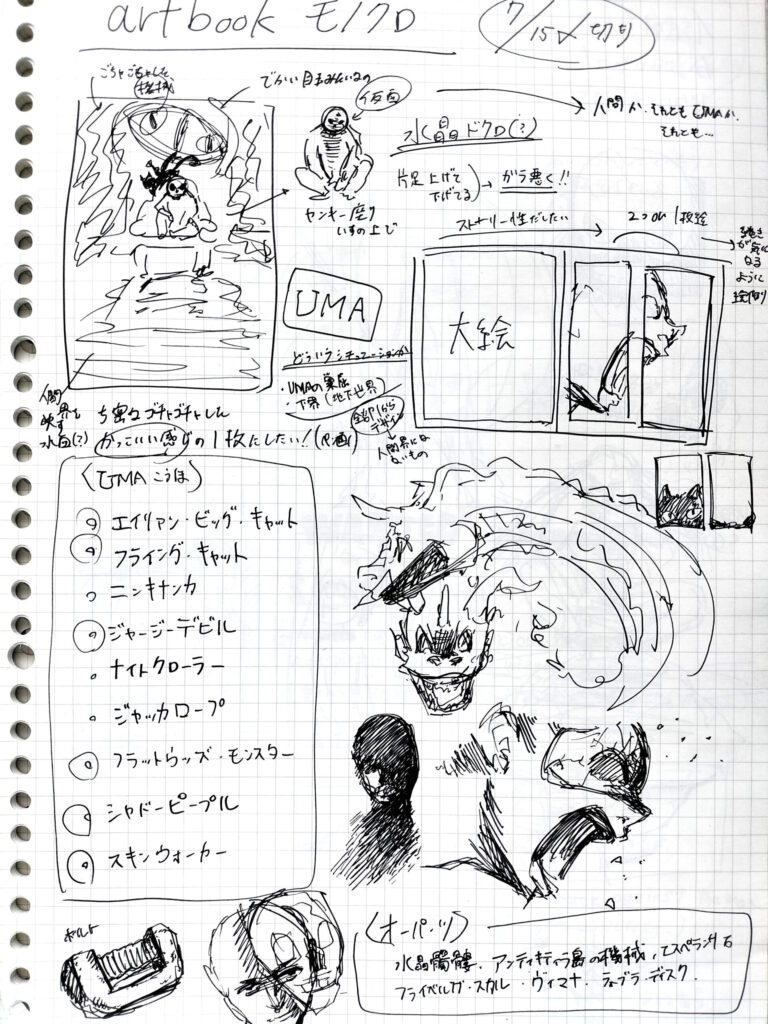 artbook モノクロ
7/15〆切り
ごちゃごちゃした機械
でかい目玉みたいなの
仮面
人間か、それともUMAか、
それとも…
水晶ドクロ(?)
片足上げて
下げてる → ガラ悪く!!
ヤンキー座り
いすの上で
ストーリー性だしたい
2つで1枚絵
大絵
UMA
どういうシチュエーションか
・UMAの巣窟
・下界(地下世界)
全部1から
デザイン
人間界には
ないもの
人間
界を
映す
水面(?)
ち密なゴチャゴチャした
かっこいい感じの1枚にしたい!!(ペン画)
〈UMAこうほ〉
エイリアン・ビッグ・キャット
フライング・キャット
ニンキナンカ
ジャージーデビル
ナイトクローラー
ジャッカロープ
フラットウッズ・モンスター
シャドーピープル
スキンウォーカー
ボルト
〈オーパーツ〉
水晶髑髏、アンティキティラ島の機械、エスペランサ石
フライベルグ・スカル・ヴィマナ、ディスク